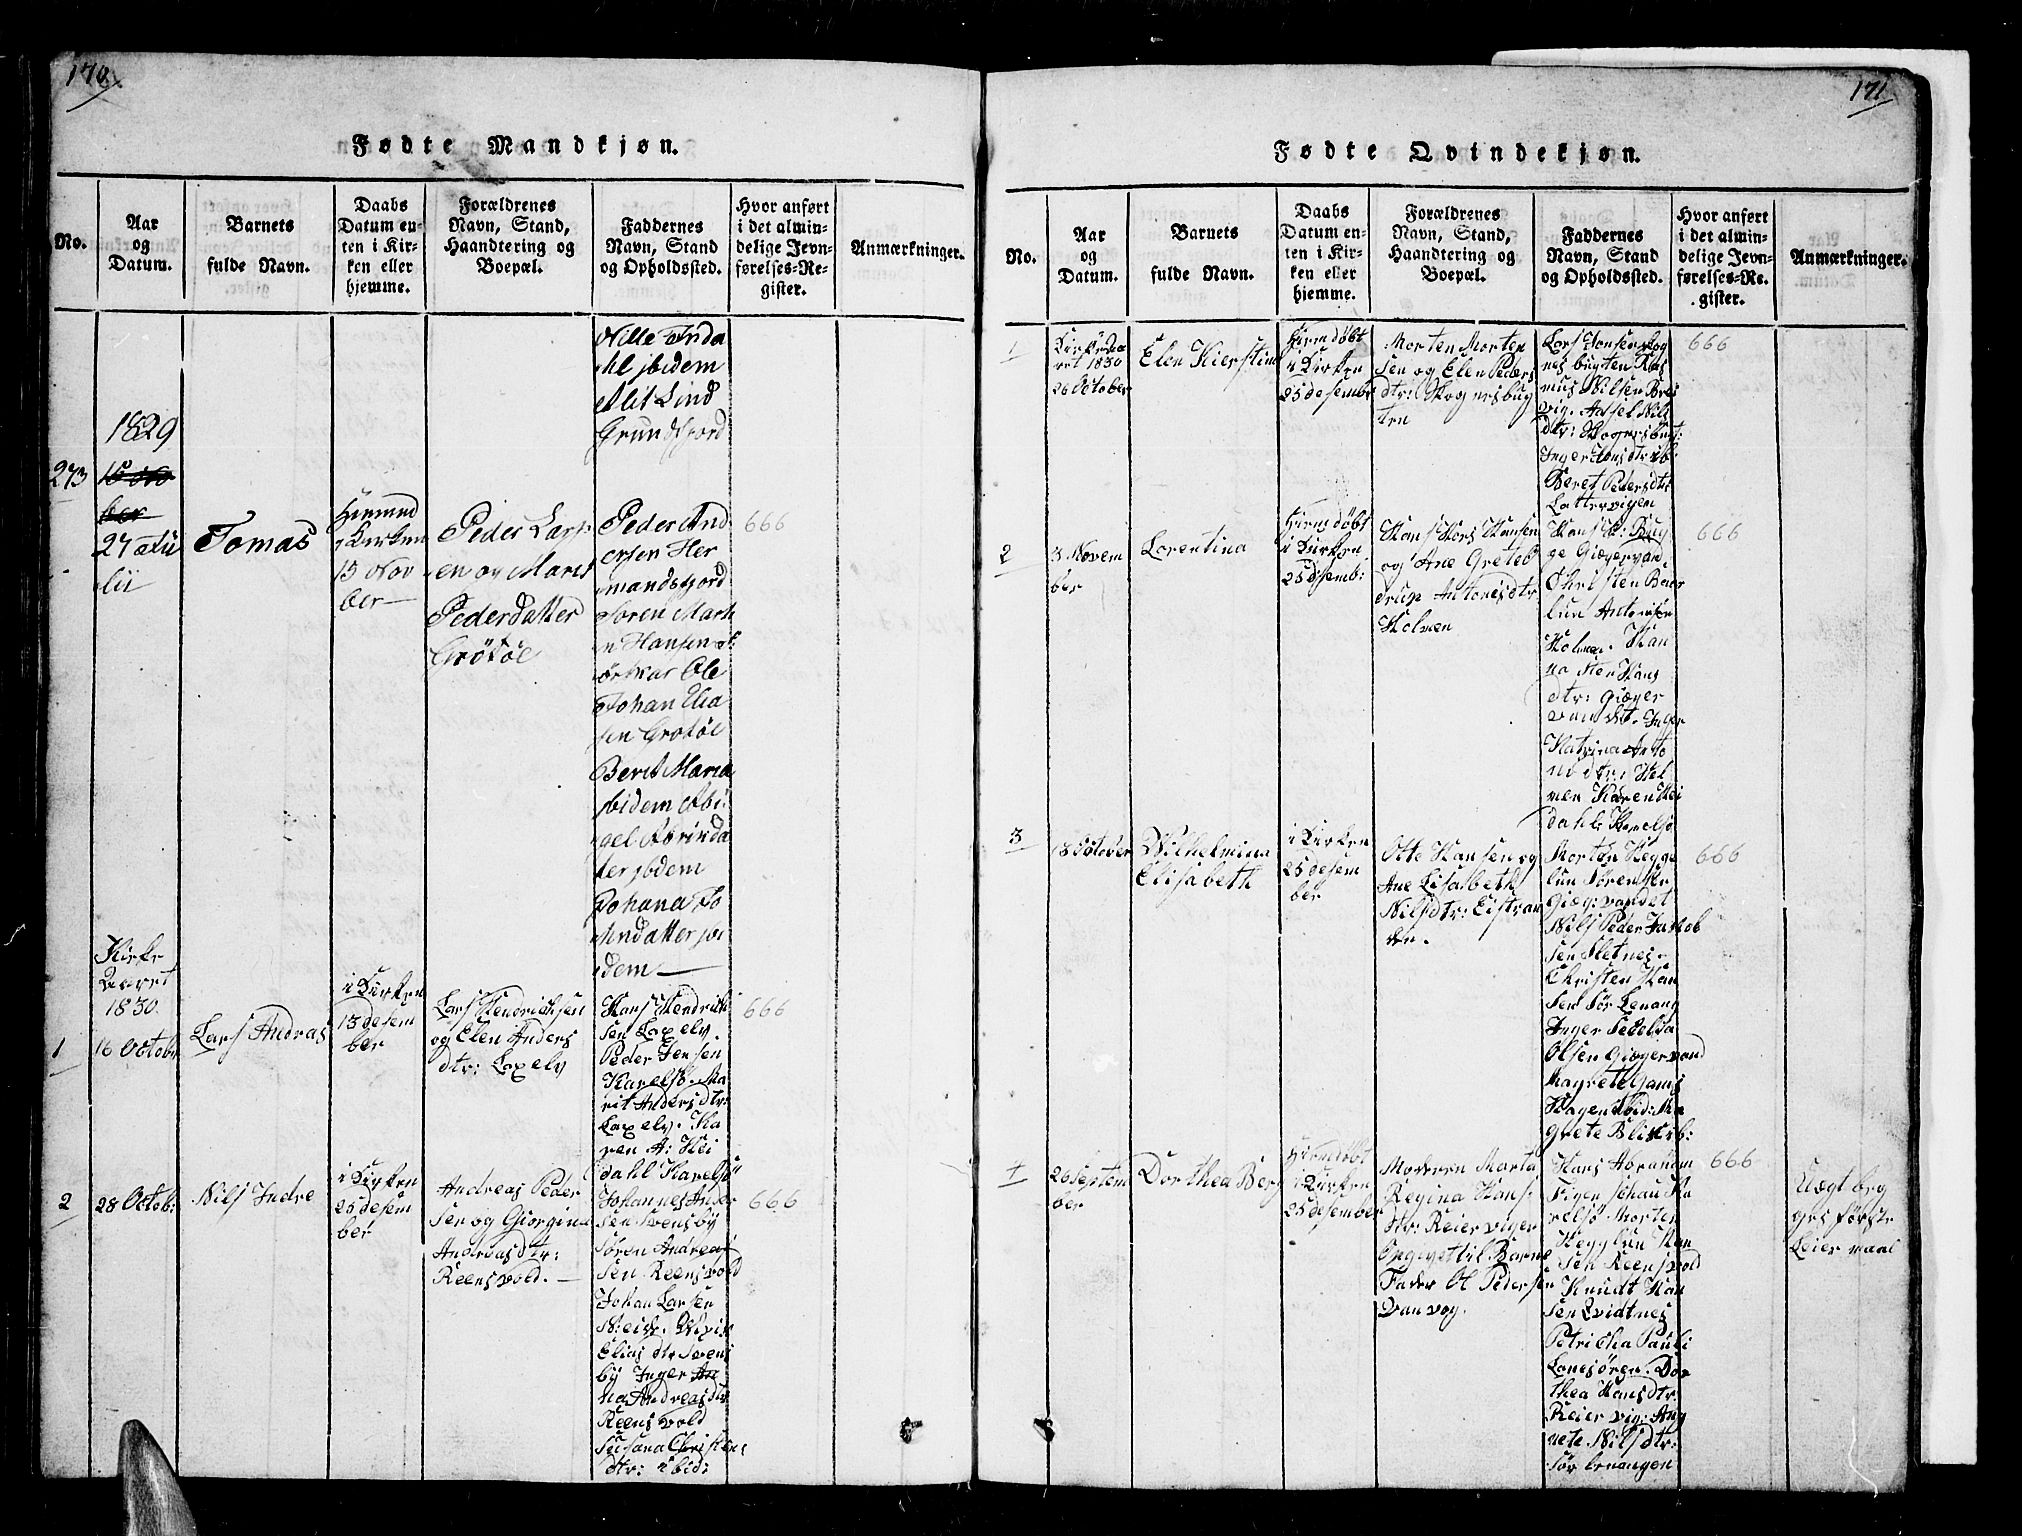 170.
Fødte Mandkjøn.
No.
Aar
og
Datum.
Barnets
fulde Navn.
Daabs
Datum en-
ten i Kir-
ken eller
hjemme.
Forældrenes
Navn, Stand,
Haandtering og
Boepæl.
Faddernes
Navn, Stand
og Opholdssted.
Hvor anført
i det almin-
delige Jevn-
førelses-Re-
gister.
Anmærkninger.
Nille Inda
hl jbidem
Alit Lind
Grundfjord
273
1829
27 Ju
lii
Tomas
Kirken
15 Nov
ber
Peder Lars
en og Maris
Pederdatter
Grötöe
Peder And
ersen Her
mandsfjord
Søren Mart
n Hansen
Ole
Johan Elia
sen Grotöe
Berit Maria
jbidem Abi
gel
ter jbidem
Johana Jo
hndatter jbi
dem
666
Kirke
Aaret
1830.
1
16 Octobr
Lars Andreas
i Kirken
13 desem
ber
Lars Hendrichsen
og Elen Anders
dtr: Laxelv
Hans Hendrich
sen Laxelv
Peder Jensen
Karelsö. Ma
rit Andersdtr:
Laxelv. Ka
ren A: Hei
dahl Karelsö
666
2
28 Octob:
Nils Indre
i Kirken
25 desem
ber
Andreas Peder
sen og Giorgine
Andreasdtr:
Reensvold.
Johannes Ander
sen Svensby
Sören Andreas
sen Reensvold
Johan Larsen
Elias dtr Svens
by Inger
na Andreasdtr
Reensvold
Susana Christens
dtr: ibid:
666
171
Fødte Qvindekjøn.
No.
Aar
og
Datum.
Barnets
fulde Navn.
Daabs
Datum en-
ten i Kir-
ken eller
hjemme.
Forældrenes
Navn, Stand,
Haandtering og
Boepæl.
Faddernes
Navn, Stand
og Opholdssted.
Hvor anført
i det almin-
delige Jevn-
førelses-Re-
gister.
Anmærkninger.
1
Kirkeaa
ret 1830
26 October
Elen Kierstine
Hiemdöbt
i Kirken
25 desembr
Morten Morten
sen og Elen Peders
dtr: Skognesbug
ten
Lars Jonsen Skog
nesbugten Ras
mus Nilsen Brei
vig.
dtr: Skognesbugt:
Inger Hansdtr ib:
Beret Pedersdtr
Lattervigen
666
2
3 Novem
ber
Lorentina
Hiemdöbt
i Kirken
25 desemb:
Hans Hors Hansen
og Ane Grete
drup Antonisdtr
Holmen
Hans H: Bug
ge Giøgervand.
Christen
lun Antonisen
Holmen. Han
na Hans
dtr: Giøger
vandet. Inger
Katrina Anto
nis dtr: Hol
men Karen Hei
dahl: Karelsö
666
3
18 October
Wilhelmina
Elisabeth
i Kirken
25 desem
ber
Otte Hansen og
Ane Lisabeth
Nilsdtr: Eistran
den.
Morten Hegge
lun Sören
Giøg:vandet
Nils Peder Jakob
sen Sletnes.
Christen Han
sen Sör Lenang
Inger Seselia
Olsen Giøgervand
Magrete Gams
Hagen ibid: Ma
grete Blix ib:
666
4
26 Septem
ber
Dorthea Berg
Hiemdöbt
i Kirken
25 desember
Moderen Marta
Regina Hans
dtr: Reiervigen
Opgivet til Barne
Fader Ol Pedersen
Vanvog.
Hans Abraham
Figenschau Ka
relsö Morten
Hegglun Han
sen Reensvold
Knudt Han
sen Qvidtnes
Petricha Pauli
Langsören. Dor
thea Hansdtr
Reiervig: Ang
nete Nilsdtr:
Sör Lenangen
666
Uægt beg
ges förste
Leiermaal